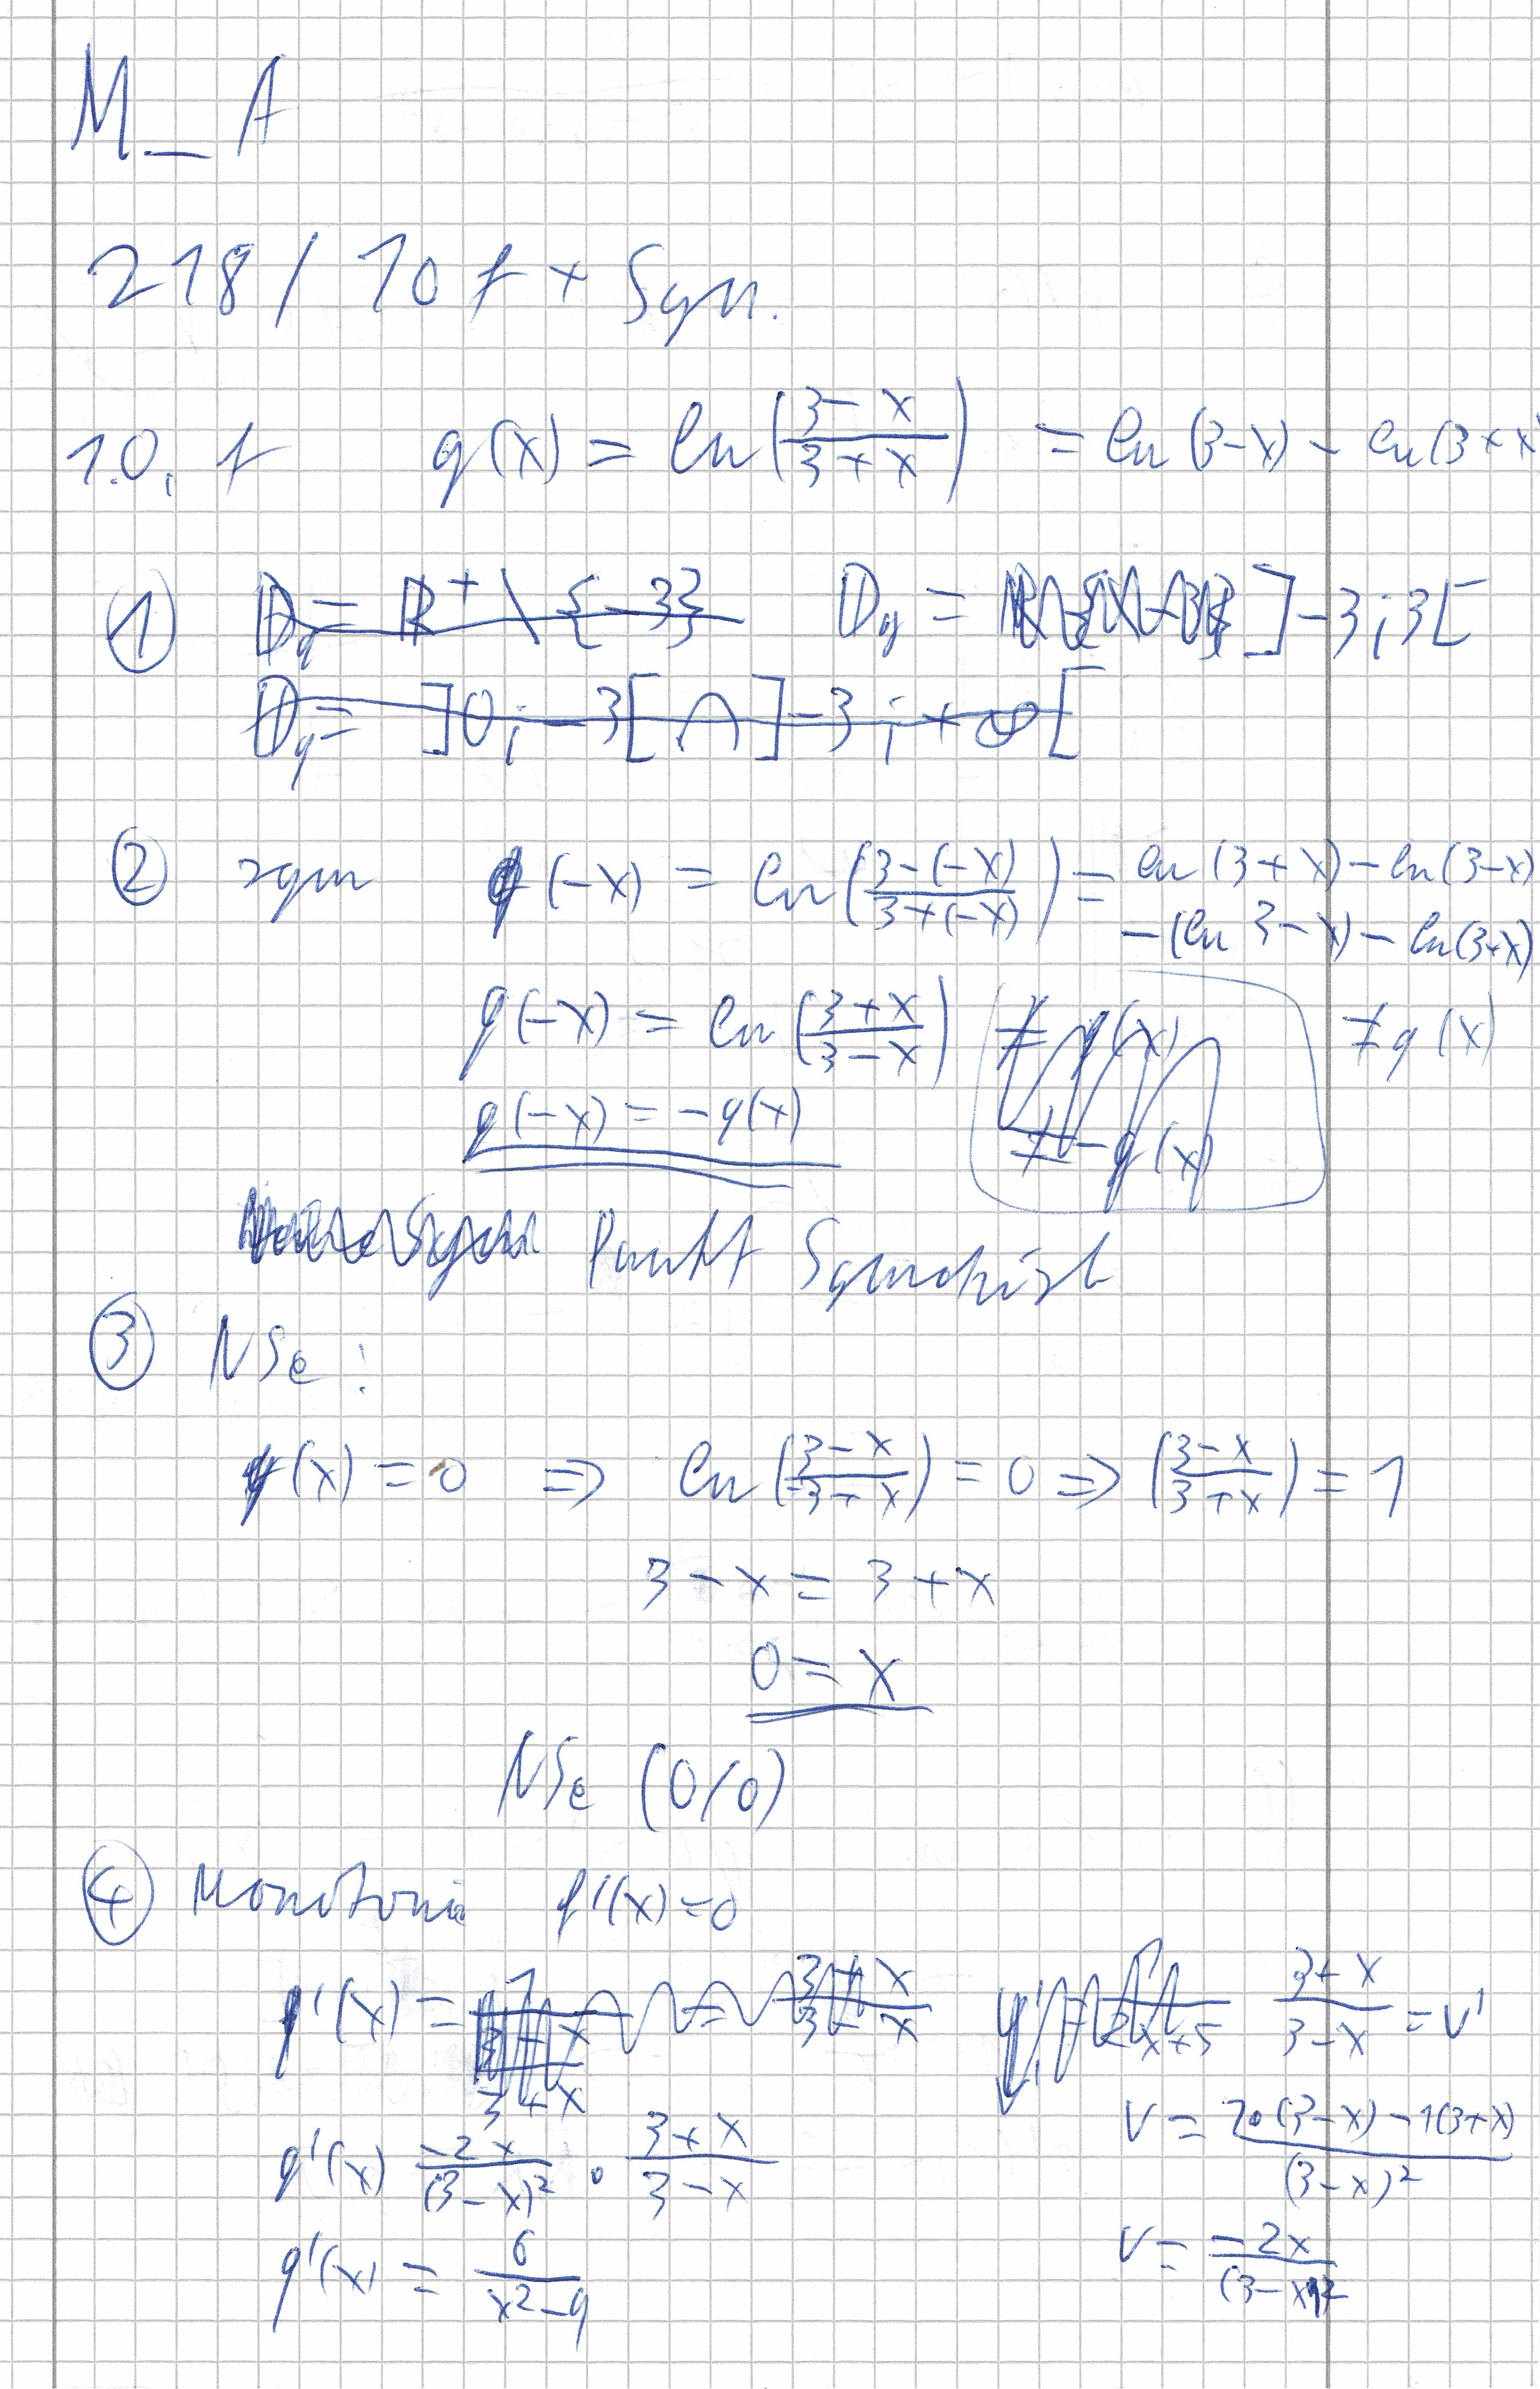 M_A
218 / 10 f + Sym.
10. f g(x) = ln((3-x)/(3+x)) = ln(3-x) - ln(3+x)
① D_g = R⁺ \ {-3} D_g = ]-3;3[
D_g = ]0;-3[ ∩ ]-3;+∞[
② sym g(-x) = ln((3-(-x))/(3+(-x))) = ln(3+x) - ln(3-x)
-(ln 3-x) - ln(3+x)
g(-x) = ln((3+x)/(3-x)) ≠ g(x) ≠ g(x)
≠ -g(x)
g(-x) = -g(x)
Punkt Symetrisch
③ NSe:
g(x) = 0 => ln((3-x)/(3+x)) = 0 => ((3-x)/(3+x)) = 1
3-x = 3+x
0 = x
NSe (0/0)
④ Monotonie f'(x)=0
g'(x) = (3+x)/(3-x) (3+x)/(3-x) = v'
v = (1·(3-x) - 1(3+x))/(3-x)²
g'(x) (-2x)/(3-x)² · (3+x)/(3-x)
v = (-2x)/(3-x)²
g'(x) = 6/(x²-9)